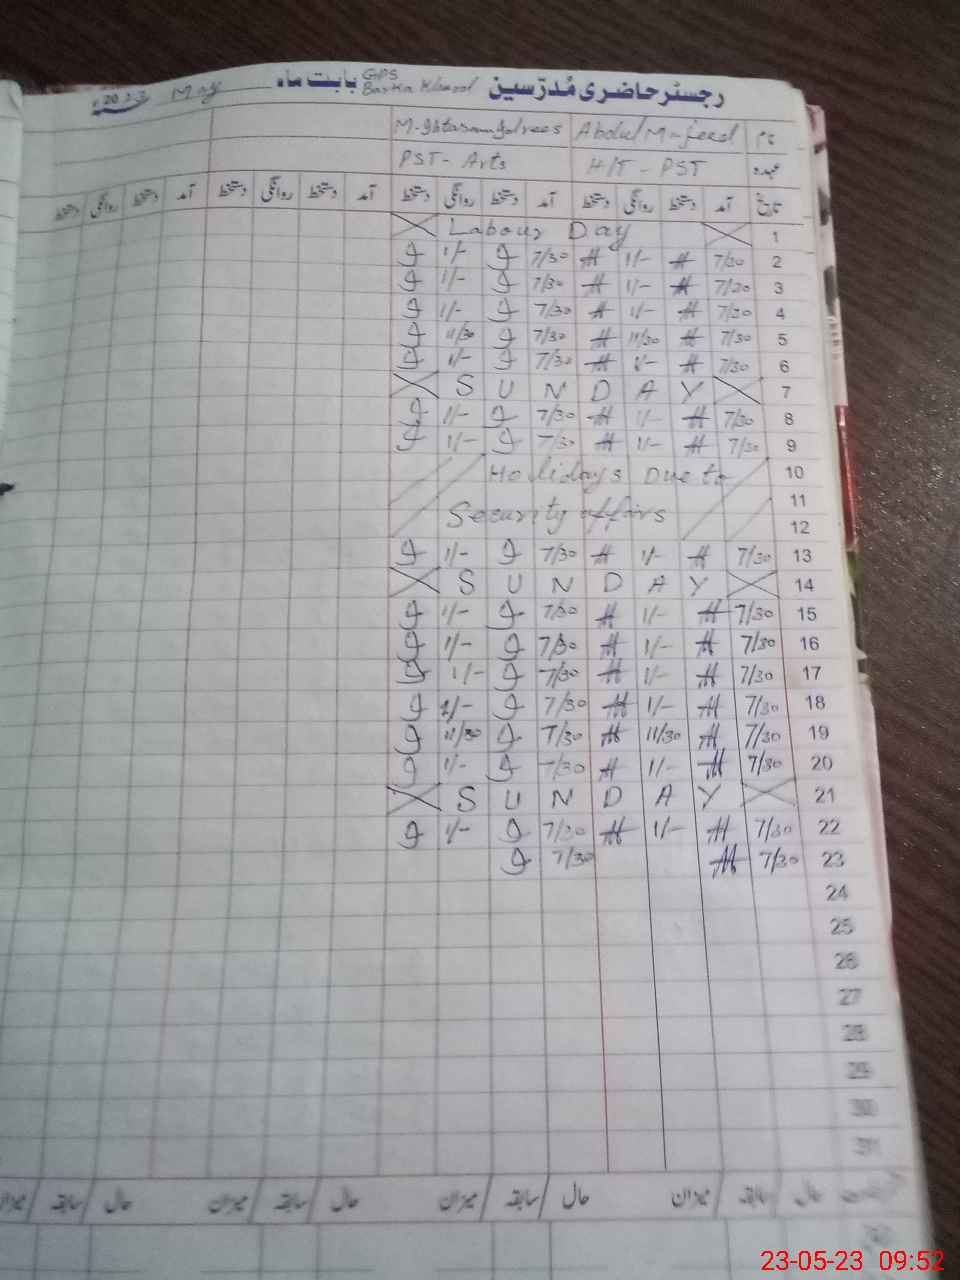 رجسٹر حاضری مُدرّسین GPS Barka Khanool بابت ماہ May 2023ء
نام Abdul M-jeed
عہدہ H/T - PST PST - Arts
تاریخ آمد دستخط روانگی دستخط آمد دستخط روانگی دستخط آمد دستخط روانگی دستخط آمد دستخط روانگی دستخط
1 Labour Day
2 7/30 1/- 7/30 1/-
3 7/30 1/- 7/30 1/-
4 7/30 1/- 7/30 1/-
5 7/30 11/30 7/30 11/30
6 7/30 1/- 7/30 1/-
7 SUNDAY
8 7/30 1/- 7/30 1/-
9 7/30 1/- 7/30 1/-
10 Holidays Due to
11
12 Security affairs
13 7/30 1/- 7/30 1/-
14 SUNDAY
15 7/30 1/- 7/30 1/-
16 7/30 1/- 7/30 1/-
17 7/30 1/- 7/30 1/-
18 7/30 1/- 7/30 1/-
19 7/30 11/30 7/30 11/30
20 7/30 1/- 7/30 1/-
21 SUNDAY
22 7/30 1/- 7/30 1/-
23 7/30 7/30
24
25
26
27
28
29
30
31
حال سابقہ میزان حال سابقہ میزان حال سابقہ میزان حال سابقہ میزان
23-05-23 09:52